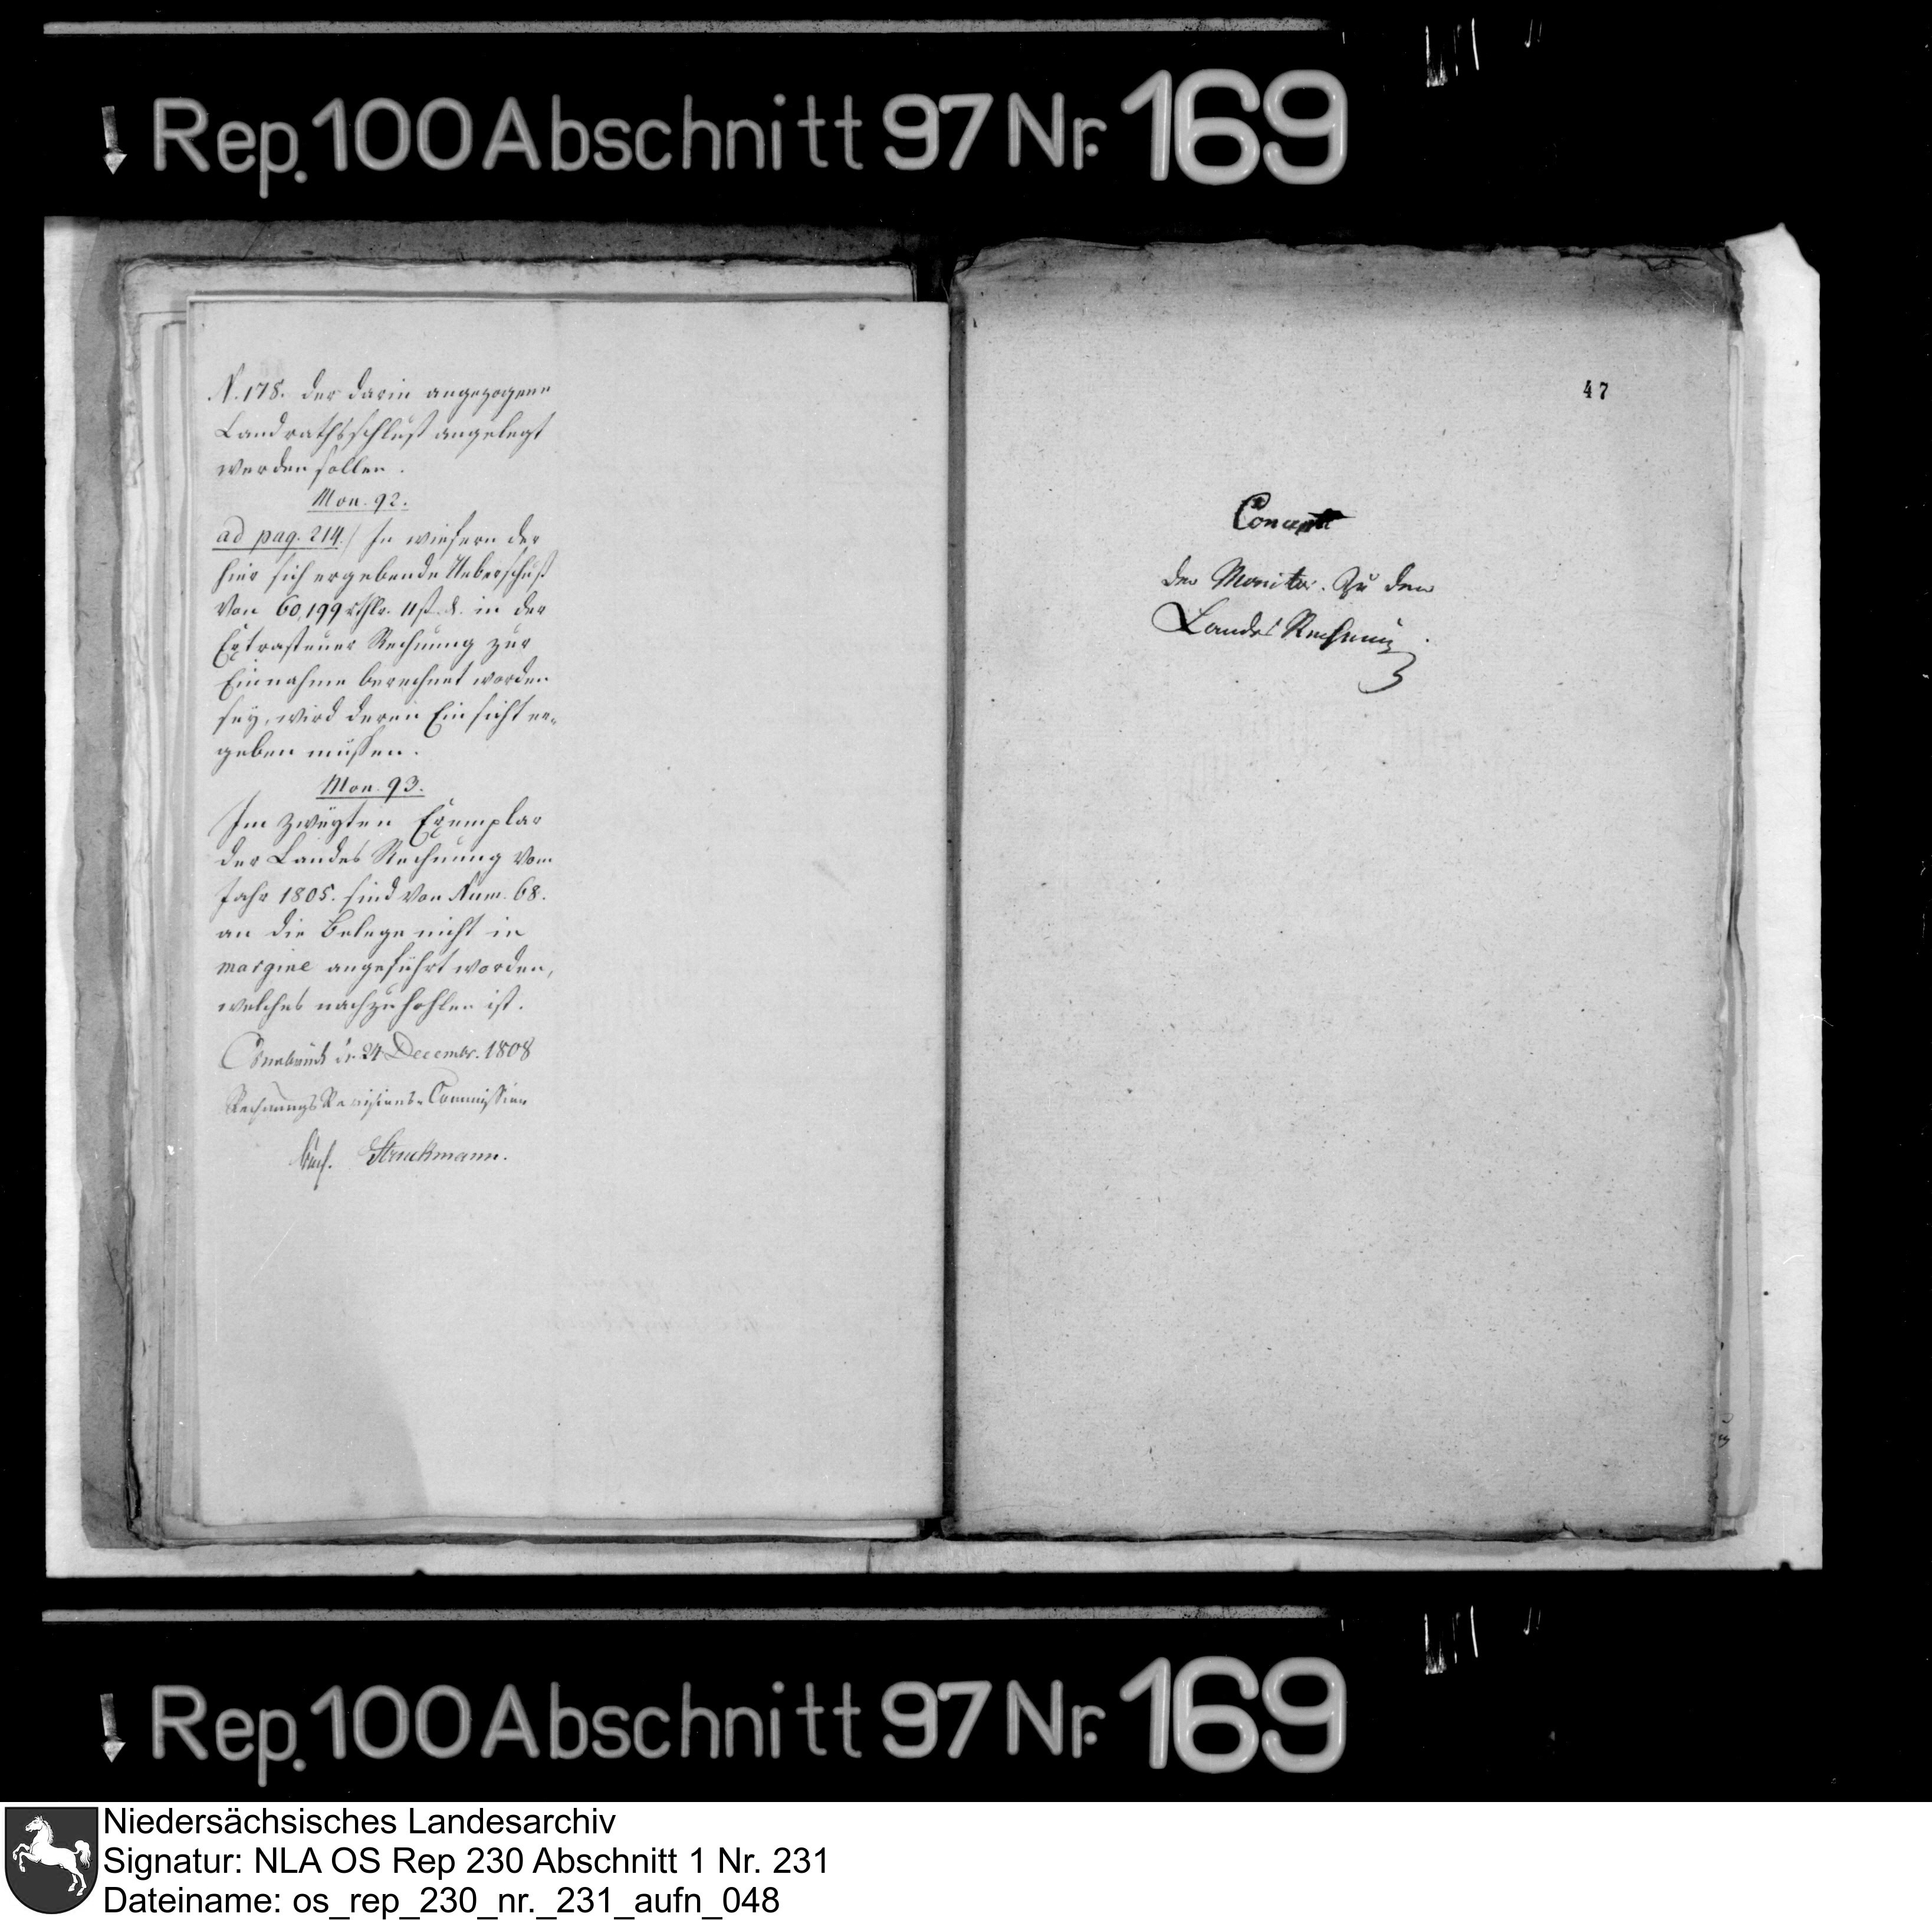 Rep. 100 Abschnitt 97 Nr. 169
N. 178. der darin angezogene
Landrathsschluß angelegt
werden sollen.
Mon. 92.
ad pag. 214./ In wiefern der
hier sich ergebende Ueberschuß
von 60,199 rthlr. 11 ß. d. in der
Extrasteuer Rechnung zur
Einnahme berechnet worden
sey, wird deren Einsicht er-
geben müssen.
Mon. 93.
Im zweyten Exemplar
der Landes Rechnung vom
Jahr 1805. sind von Num. 68.
an die Belege nicht in
margine angeführt worden,
welches nachzuhohlen ist.
Osnabrück d. 24 Decembr. 1808
Rechnungs Revisions-Commission
Struckmann.
47
Concept
der Monitor. zu den
Landes Rechnung
Rep. 100 Abschnitt 97 Nr. 169
Niedersächsisches Landesarchiv
Signatur: NLA OS Rep 230 Abschnitt 1 Nr. 231
Dateiname: os_rep_230_nr._231_aufn_048